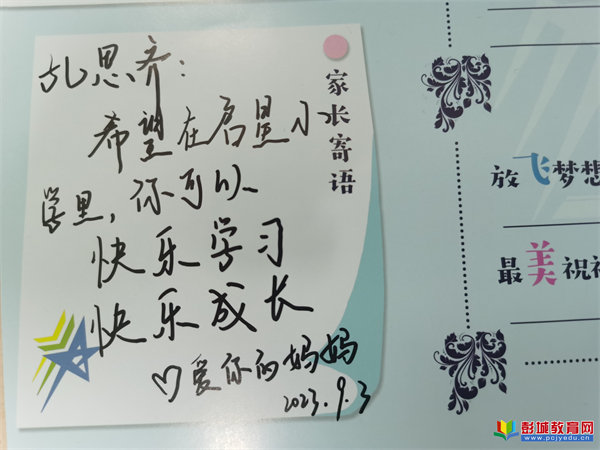 孔思齐：
希望在启星小
学里，你可以
快乐学习
快乐成长
♡爱你的妈妈
2023.9.3
家长寄语
放飞梦想
最美祝福
彭城教育网
http://www.pcjyedu.com